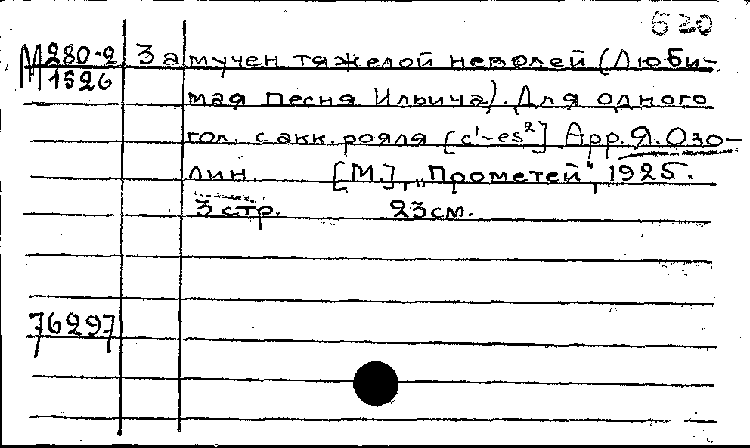 620
М 280-2 Замучен тяжелой неволей (Люби-
1526 мая песня Ильича). Для одного
гол. с акк. рояля [c'-es²] Арр. Я. Озо-
лин. [М.], „Прометей", 1925.
3 стр. 23 см.
76297